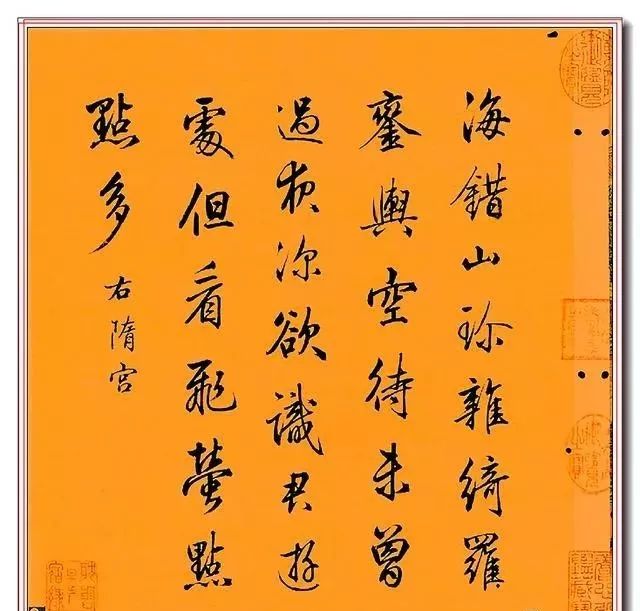 海錯山珎雜綺羅
鑾輿空待未曾
過夜涼欲識君遊
處但看飛螢點
點多
右隋宮